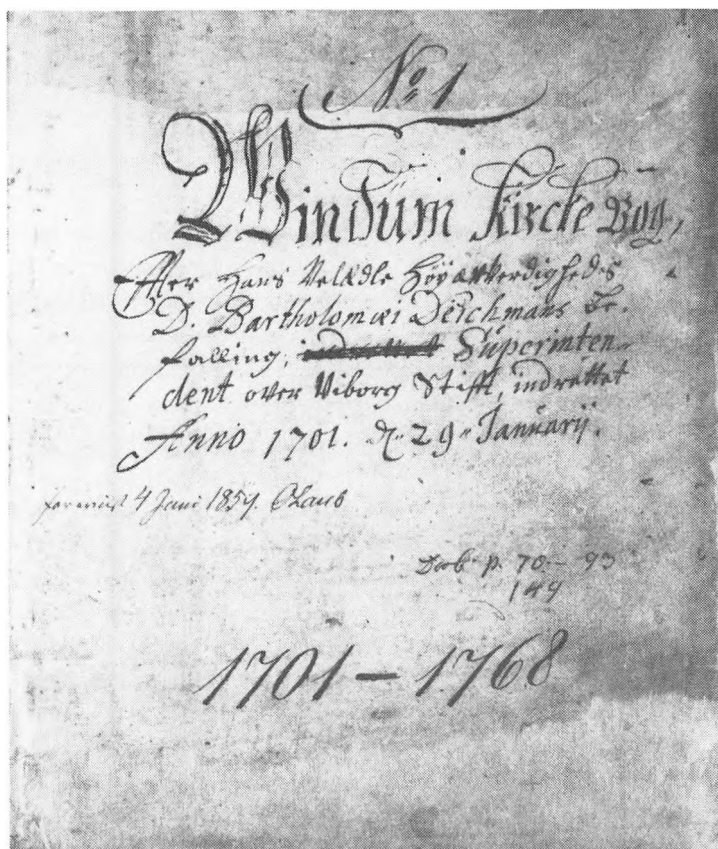 No 1
Windum Kircke Bog,
Efter Hans Velædle Høyærverdigheds
D. Bartholomæi Deichmans Be-
falling, Superinten-
dent over Viborg Stifft, indrettet
Anno 1701. d. 29 Januarij.
4 Juni 1859.
Daab p. 70 - 93
149
1701 - 1768